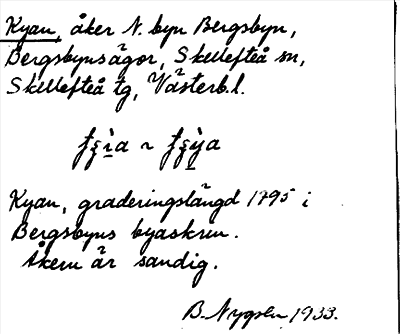 Kyan, åker N. byn Bergsbyn,
Bergsbynsägor, Skellefteå sn,
Skellefteå tg, Västerb.l.
Kyan, graderingslängd 1795 i
Bergsbyns byaskrin.
Åkern är sandig.
B. Nygren 1933.